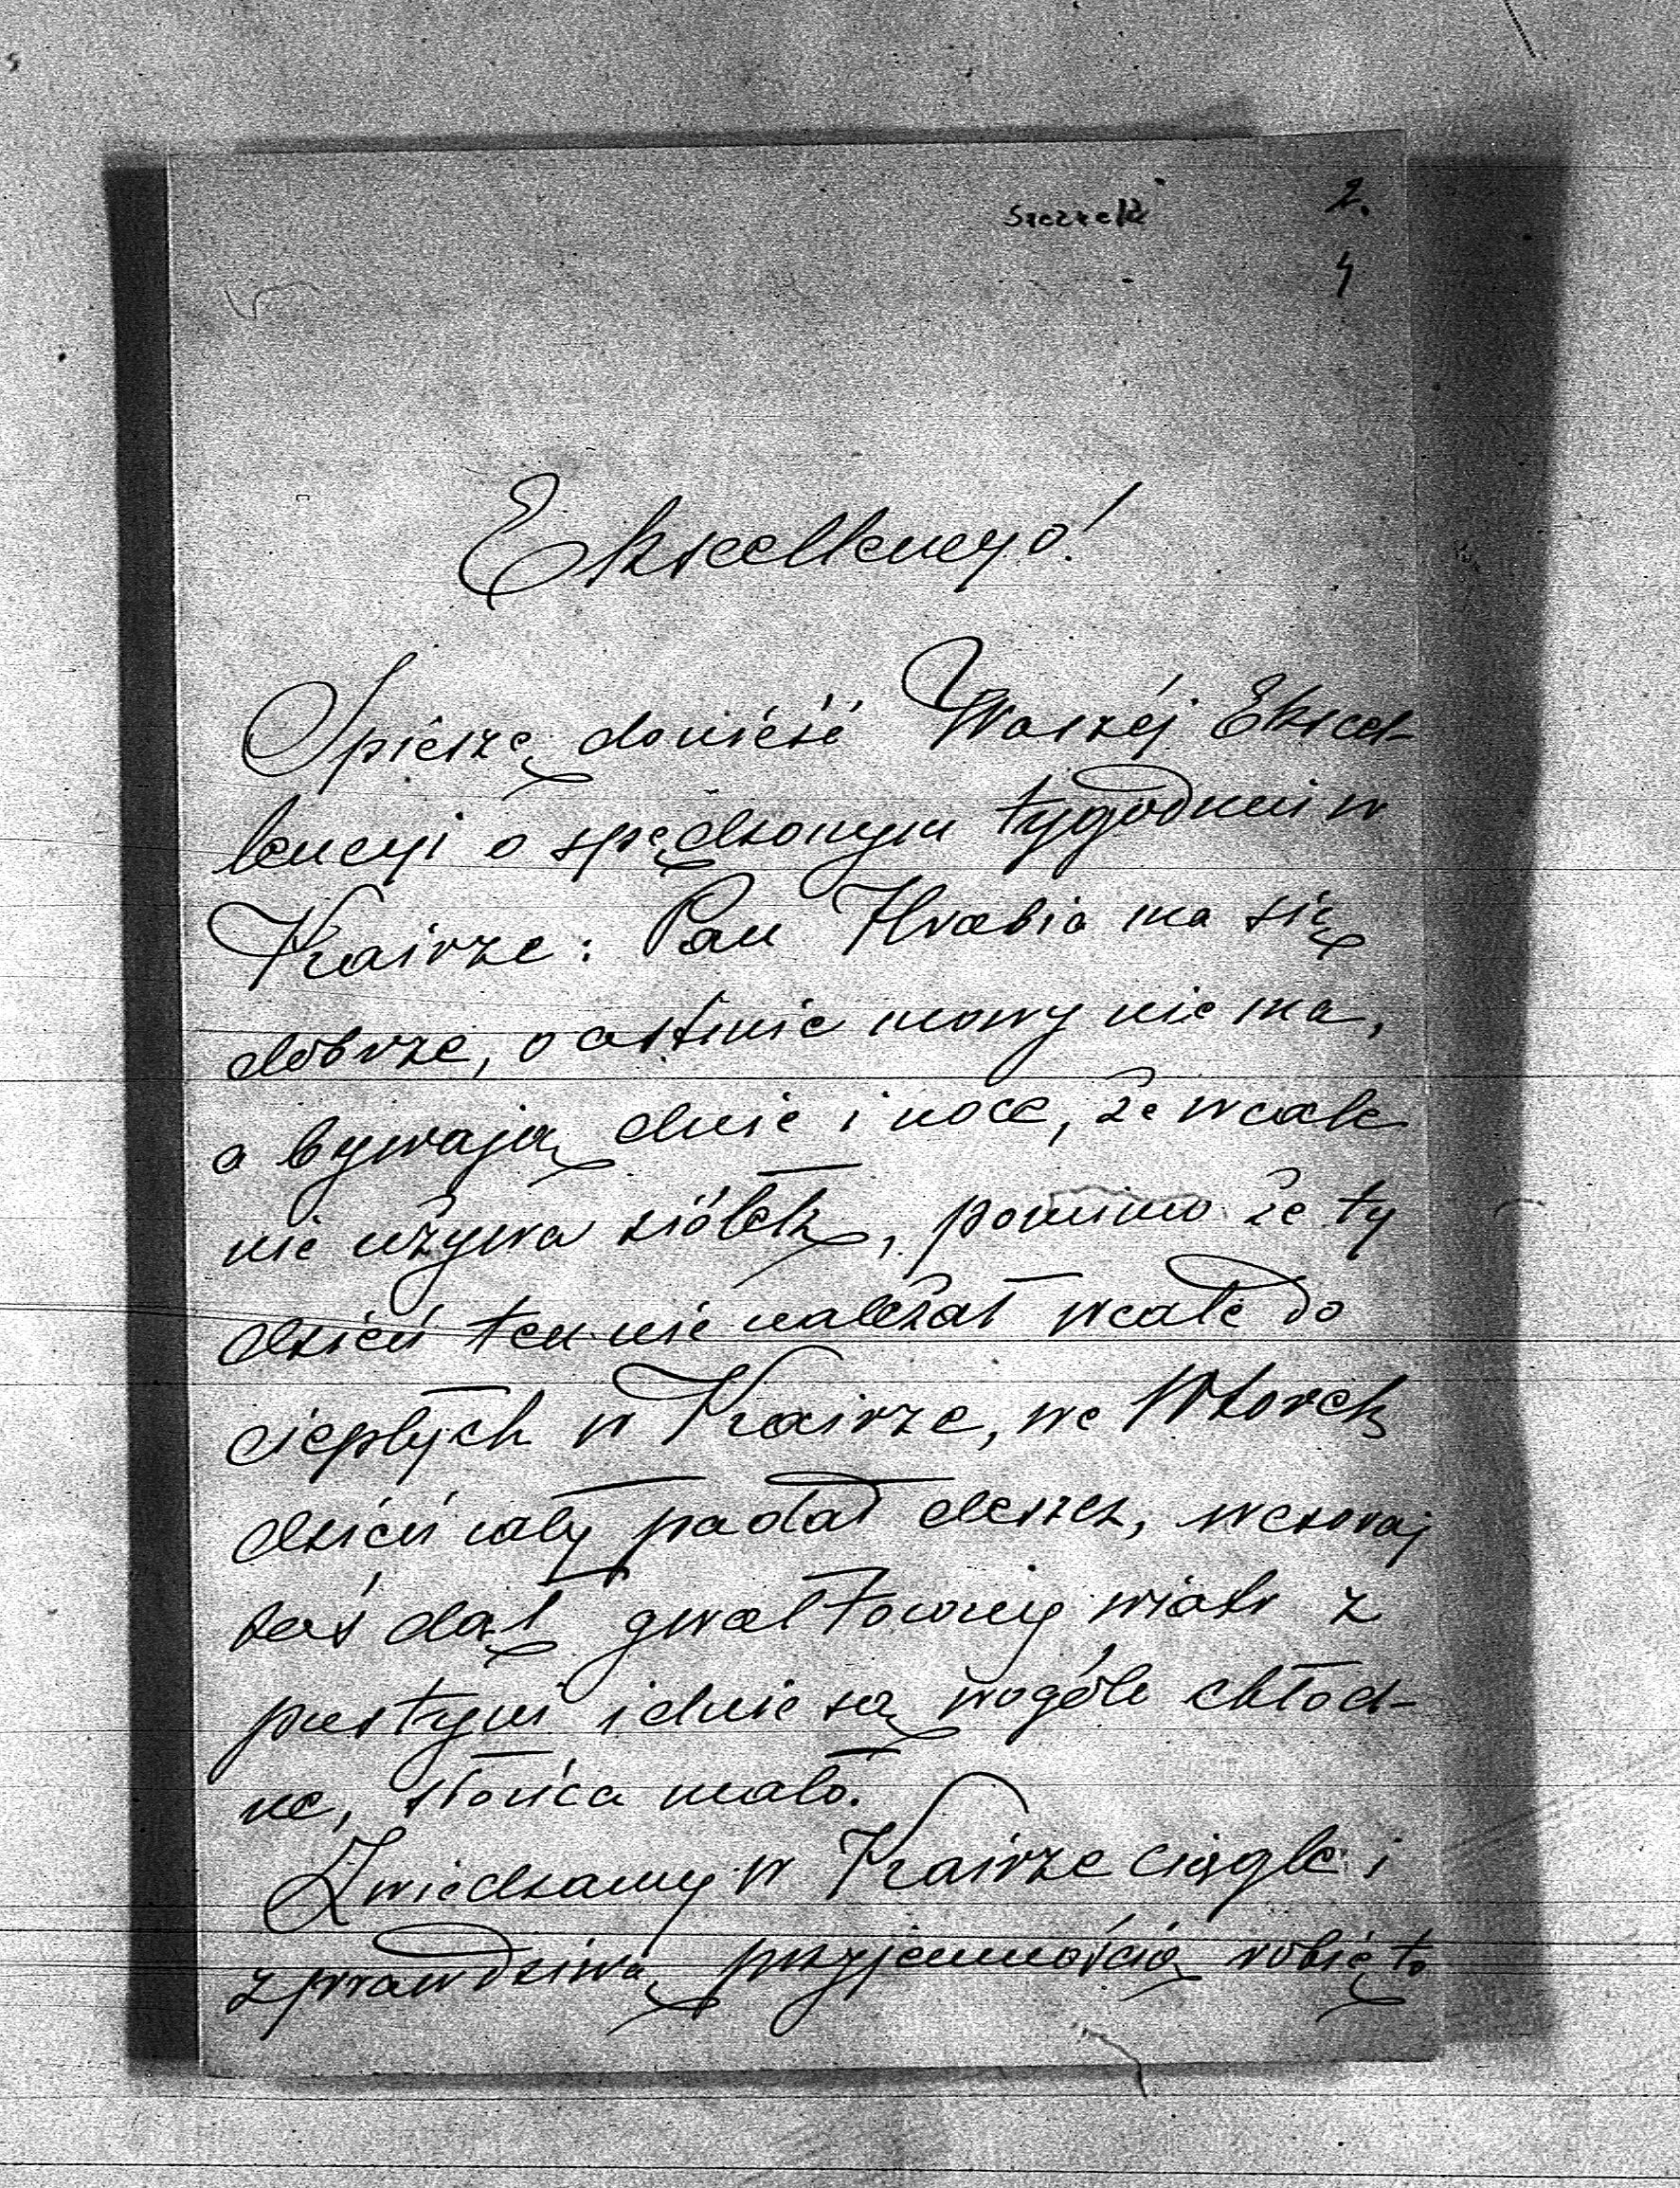 2.
4
Ekscellencyo!
Spieszę donieść Waszéj Ekscel-
lencyi o spędzonym tygodniu w
Kairze: Pan Hrabia ma się
dobrze, o astmie mowy nie ma,
a bywają dnie i noce, że wcale
nie używa ziółek, pomimo że ty
dzień ten nie należał wcale do
ciepłych w Kairze, we Wtorek
dzień cały padał deszcz, wczoraj
zaś dął gwałtowny wiatr z
pustyni i dnie są wogóle chłod-
ne, słońca mało.
Zwiedzamy w Kairze ciągle i
z prawdziwą przyjemnością robię to